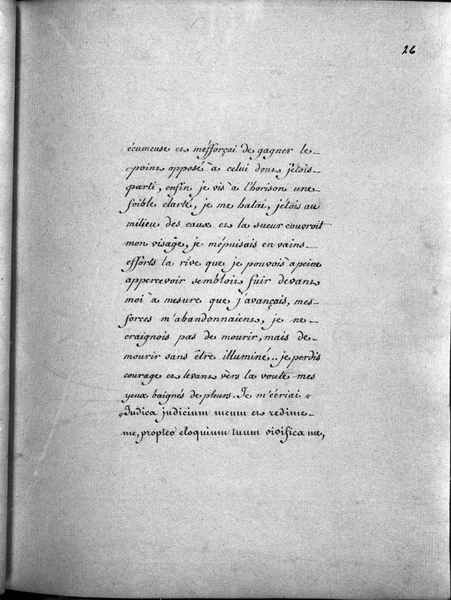 26
écumeuse et m'efforçai de gagner le
point opposé a celui dont j'étois
parti, enfin je vis a l'horison une
foible clarté, je me hatai, j'étois au
milieu des eaux et la sueur couvroit
mon visage, je m'épuisais en vains
efforts la rive que je pouvois a peine
appercevoir sembloit fuir devant
moi a mesure que j'avançais, mes
forces m'abandonnaient, je ne
craignois pas de mourir, mais de
mourir sans être illuminé.. je perdis
courage et levant vers la voute mes
yeux baignés de pleurs. Je m'écriai «
Judica judicium meum et redime
me, propter eloquium tuum vivifica me,